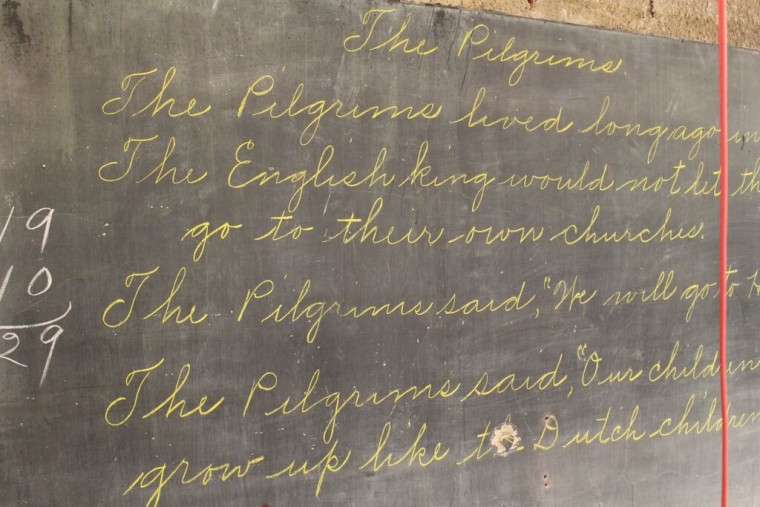 The Pilgrims.
The Pilgrims lived long ago in
The English king would not let th
go to their own churches.
The Pilgrims said, "We will go to H
The Pilgrims said, "Our children
grow up like Dutch children
19
10
29